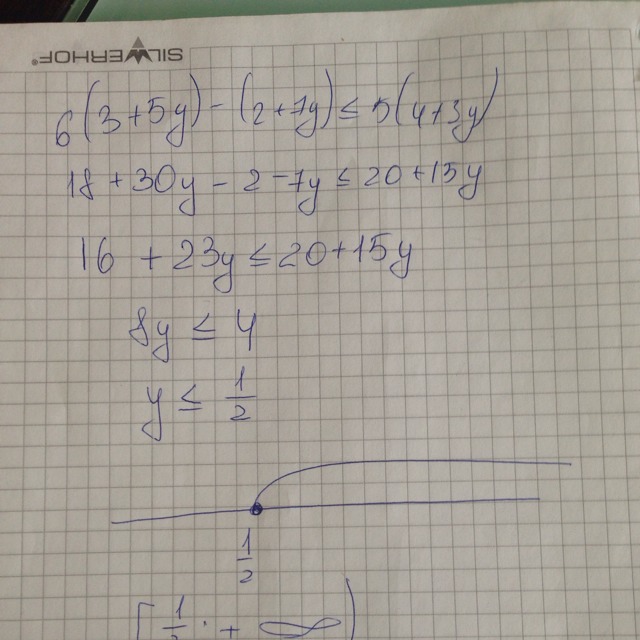 SILWERHOF
6(3+5y)-(2+7y)≤5(4+3y)
18+30y-2-7y≤20+15y
16+23y≤20+15y
8y≤4
y≤1/2
1/2
[1/2;+∞)